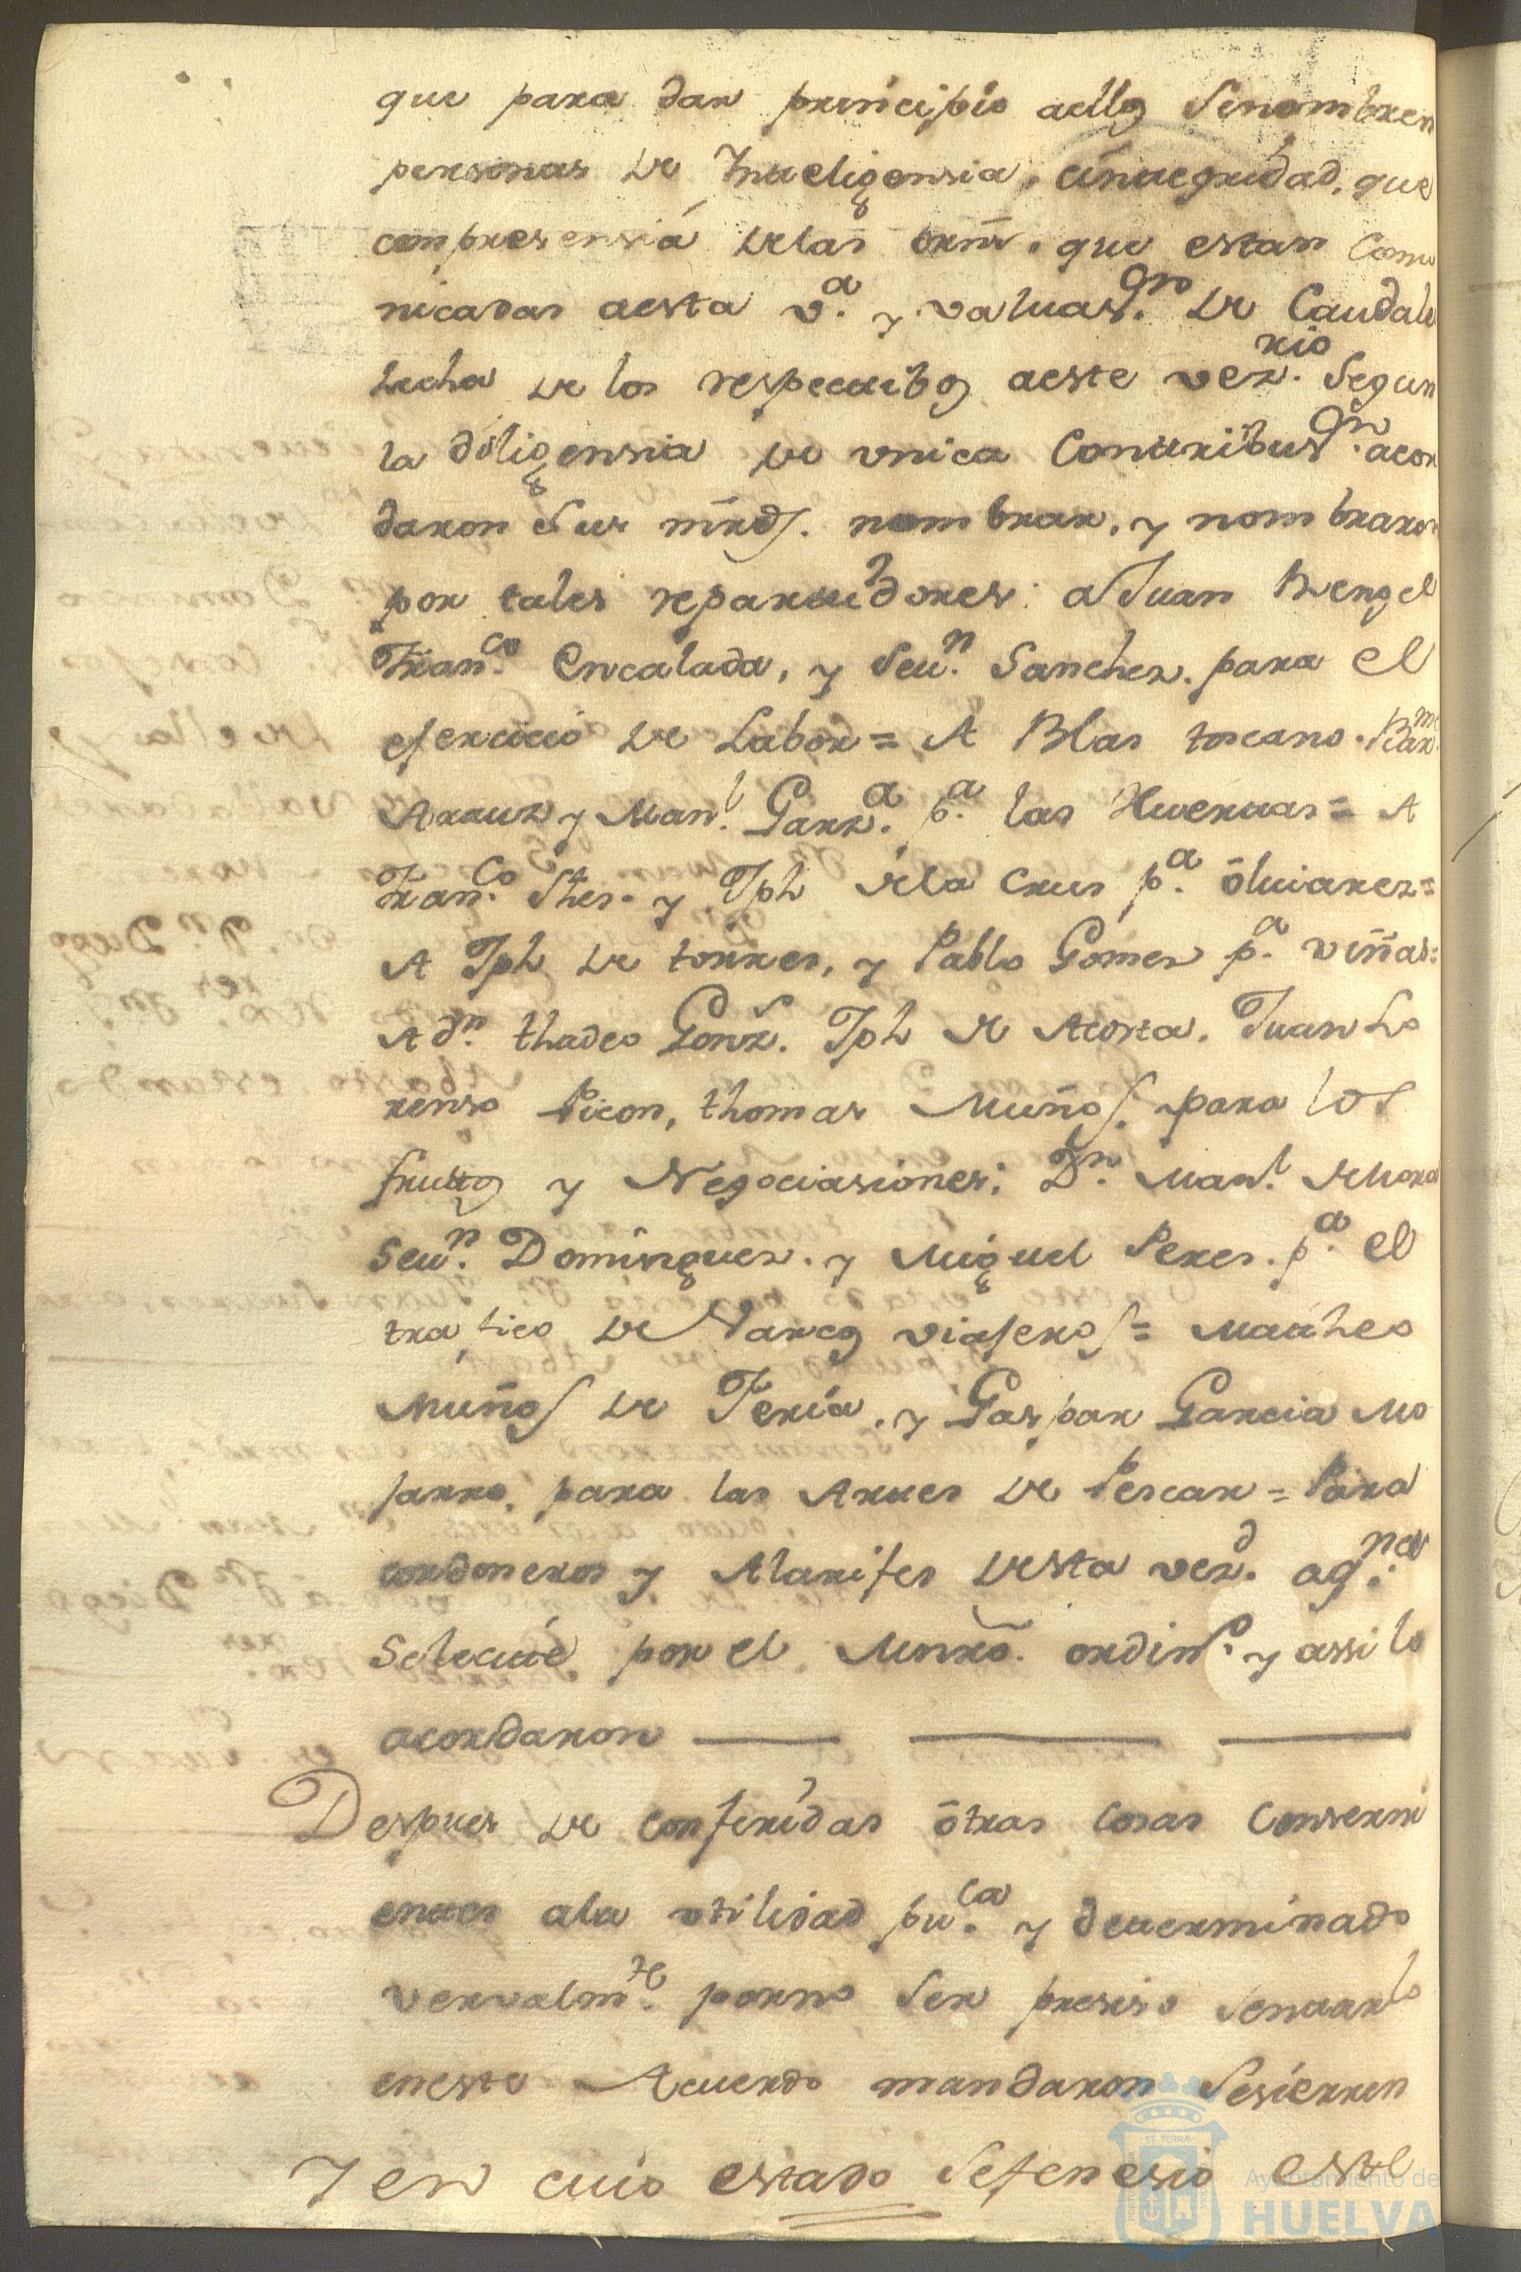 que para dar principio aellos Senombren
personas de Inteligensia, eintegridad, que
conpresensiá delas orns. que estan Comu
nicadas aesta va. y valuason. de Caudale
hecha de los respectibos aeste vezrio. Segun
la diligensia de vnica Contribuson. acor
daron Sus mrds. nombrar, y nombraron
por tales repartidores: a Juan Rengel
Franco. Encalada, y Sevn. Sanchez. para el
exercicio de Labor = A Blas toscano. Barme
Arauz y Manl. Garza. pa. las Huertas = A
Franco. Shes. y Jph dela Crus pa. ōluiares =
A Jph de torres, y Pablo Gomez pa. viñas =
A dn. thadeo Gonz. Jph de Acosta. Juan Lo
renso Picon, thomas Muños. para los
frutos y Negociasiones: Dn. Manl. de Mora
Sevn. Dominguez. y Miguel Peres. pa. el
trafico de Varcos viajeros = Matheo
Muños de Feria, y Gaspar Garcia Mo
jarro, para las Artes de Pescar = Para
cordoneros y Alarifes desta vezd. aqnes
Selecité por el Mnro. ordino. y assi lo
acordaron
Despues de conferidas ōtras cosas Conserni
entes ala vtilidad puca. y determinado
vervalmte. porno Ser presiso Sentarlo
eneste Acuerdo mandaron Sesierren
Y en cuio estado Sefenesio este
Ayuntamiento de
HUELVA